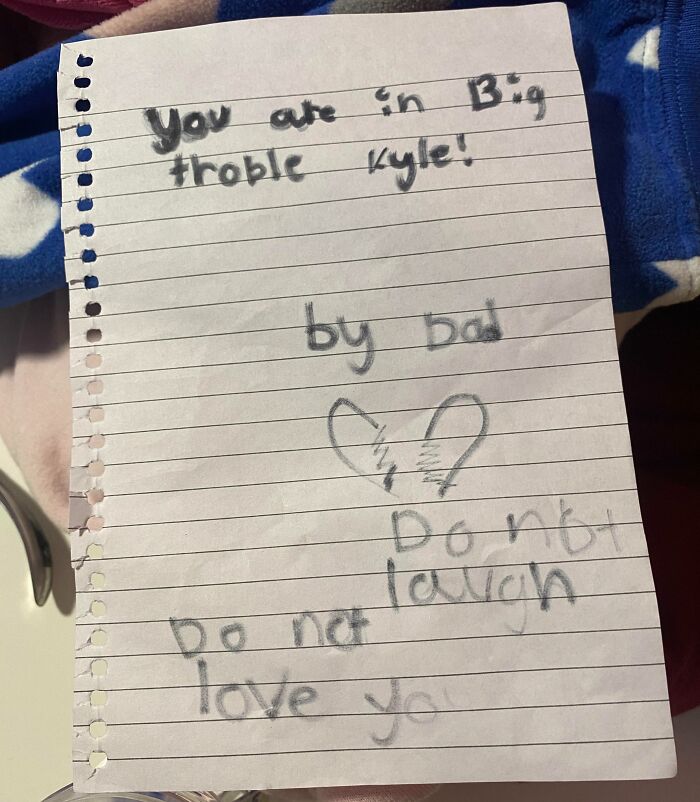 You are in Big
troble Kyle!
by bad
Do not
laugh
Do not
love yo